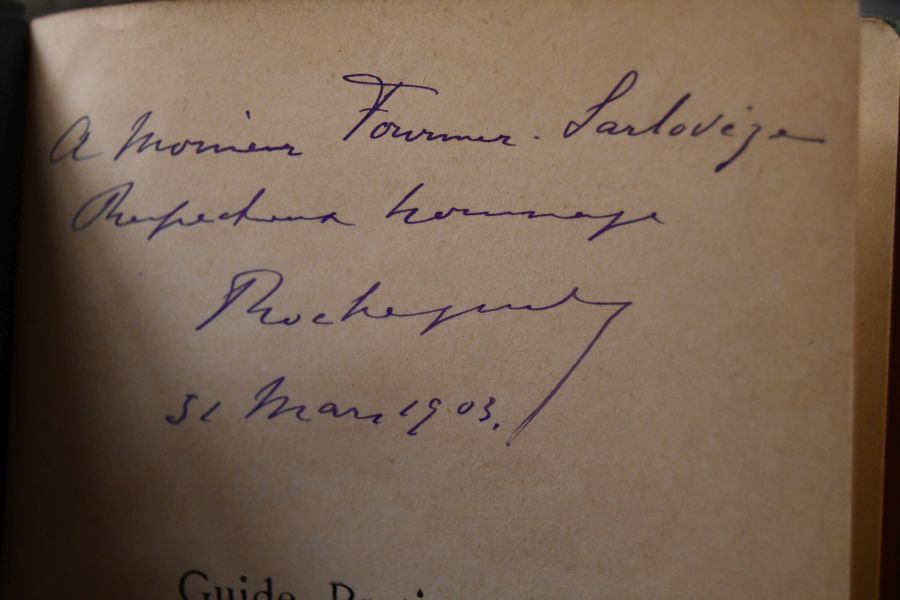 A Monsieur Fournier-Sarlovèze
Respectueux hommage
Rochegude
31 Mars 1903.
Guide